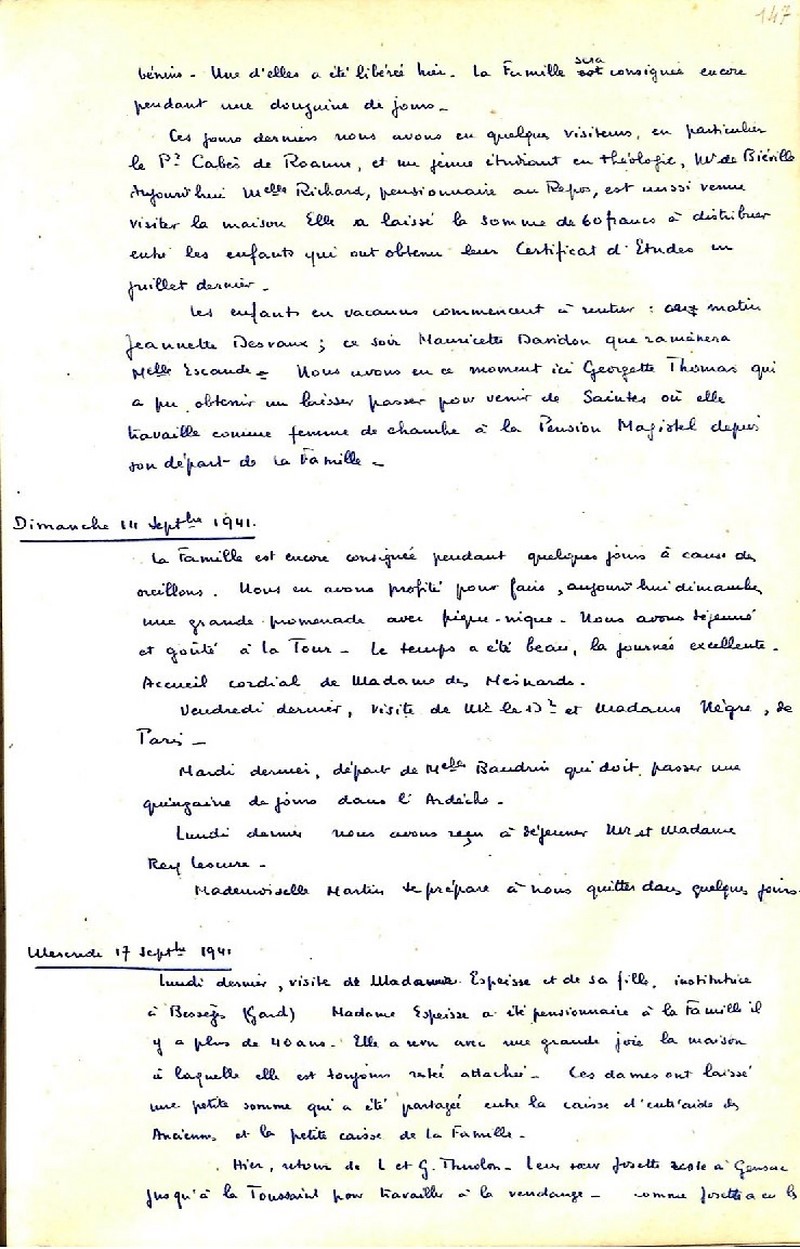 147
bénins - Une d'elles a été libérée hier. La Famille sera consignée encore
pendant une douzaine de jours -
Ces jours derniers nous avons eu quelques visiteurs, en particulier
le Pr Cabès de Roanne, et un jeune étudiant en théologie, Mr de Biéville
Aujourd'hui Melle Richard, pensionnaire au Repos, est aussi venue
visiter la maison Elle a laissé la somme de 60 francs à distribuer
entre les enfants qui ont obtenu leur Certificat d'Etudes en
juillet dernier -
Les enfants en vacances commencent à rentrer : matin
Jeannette Desvaux ; ce soir Mauricette Davidon que ramènera
Melle Escande - Nous avons en ce moment ici Georgette Thomas qui
a pu obtenir un laisser passer pour venir de Saintes où elle
travaille comme femme de chambre à la Pension Magistel depuis
son départ de la Famille -
Dimanche 14 Septbre 1941.
La Famille est encore consignée pendant quelques jours à cause des
oreillons. Nous en avons profité pour faire, aujourd'hui dimanche,
une grande promenade avec pique-nique - Nous avons déjeuné
et goûté à la Tour - Le temps a été beau, la journée excellente.
Accueil cordial de Madame des Mesnards.
Vendredi dernier, visite de Mr le Dr et Madame Nègre, de
Paris -
Mardi dernier, départ de Melle Baudrin qui doit passer une
quinzaine de jours dans l'Ardèche -
Lundi dernier nous avons reçu à déjeuner Mr et Madame
Rey Lescure -
Mademoiselle Martin se prépare à nous quitter dans quelques jours.
Mercredi 17 Septbre 1941
Lundi dernier, visite de Madame Espeisse et de sa fille, institutrice
à Bessèges (Gard) Madame Espeisse a été pensionnaire à la Famille il
y a plus de 40 ans. Elle a revu avec une grande joie la maison
à laquelle elle est toujours restée attachée - Ces dames ont laissé
une petite somme qui a été partagée entre la caisse d'entr'aide des
Anciennes et la petite caisse de la Famille -
Hier, retour de L et G. Thulon - Leur soeur Josette reste à Gensac
jusqu'à la Toussaint pour travailler à la vendange - comme Josette a eu les